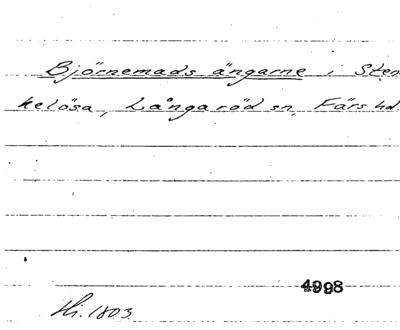 Björnemads ängarne i Sten
kelösa, Långaröd sn, Färs hd.
4998
Hi. 1803.